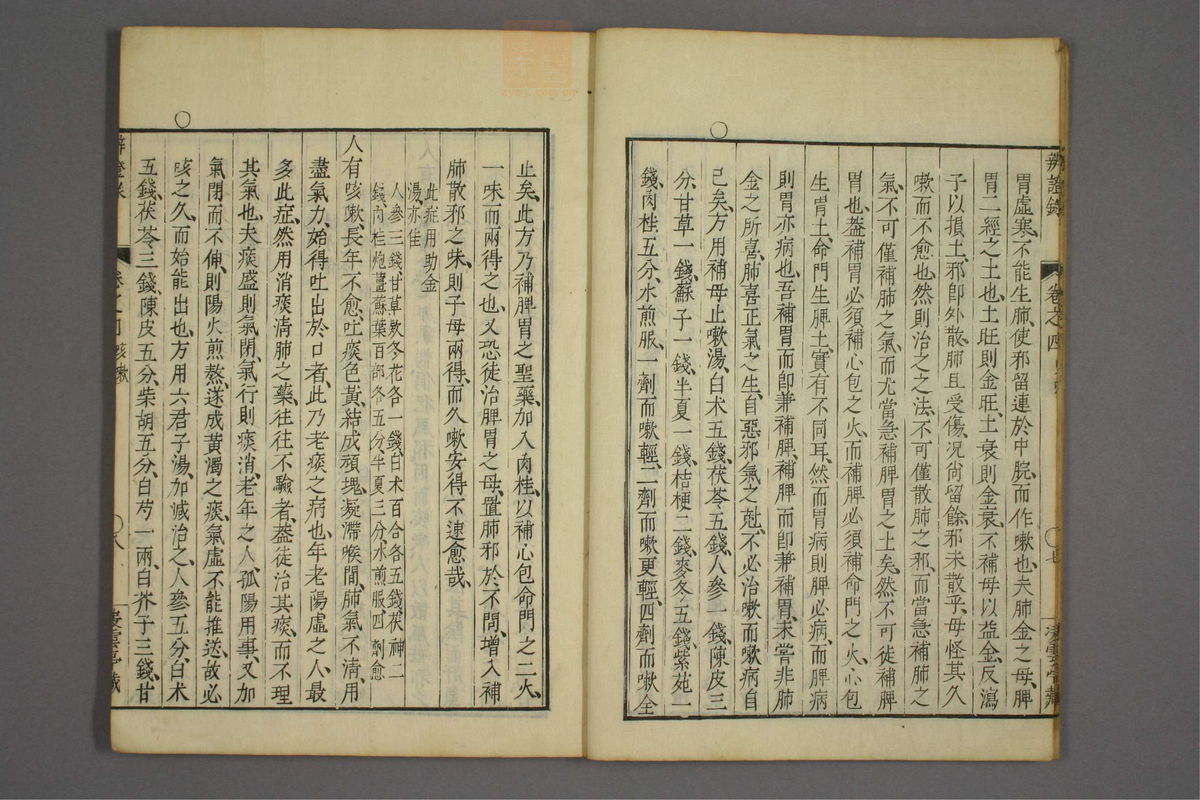 辨證錄 卷之四
七
胃虛寒、不能生肺、使邪留連於中脘、而作嗽也、夫肺金之母、脾
胃二經之土也、土旺則金旺、土衰則金衰、不補母以益金、反瀉
子以損土、邪卽外散、肺且受傷、況尚留餘邪未散乎、毋怪其久
嗽而不愈也、然則治之之法、不可僅散肺之邪、而當急補肺之
氣、不可僅補肺之氣、而尤當急補脾胃之土矣、然不可徒補脾
胃也、蓋補胃必須補心包之火、而補脾必須補命門之火、心包
生胃土、命門生脾土、實有不同耳、然而胃病則脾必病、而脾病
則胃亦病也、吾補胃而卽兼補脾、補脾而卽兼補胃、未嘗非肺
金之所喜、肺喜正氣之生、自惡邪氣之尅、不必治嗽而嗽病自
已矣、方用補母止嗽湯、白术五錢、茯苓五錢、人參一錢、陳皮三
分、甘草一錢、蘇子一錢、半夏一錢、桔梗二錢、麥冬五錢、紫菀一
錢、肉桂五分、水煎服、一劑而嗽輕、二劑而嗽更輕、四劑而嗽全
止矣、此方乃補脾胃之聖藥、加入肉桂以補心包命門之二火、
一味而兩得之也、又恐徒治脾胃之母、置肺邪於不問、增入補
肺散邪之味、則子母兩得、而久嗽安得不速愈哉、
此症用助金
湯亦佳
人參三錢甘草欵冬花各一錢白术百合各五錢茯神二
錢肉桂炮薑蘇葉百部各五分、半夏三分、水煎服、四劑愈
人有咳嗽、長年不愈、吐痰色黃、結成頑塊、凝滯喉間、肺氣不清、用
盡氣力、始得吐出於口者、此乃老痰之病也、年老陽虛之人、最
多此症、然用消痰清肺之藥、往往不驗者、蓋徒治其痰、而不理
其氣也、夫痰盛則氣閉、氣行則痰消、老年之人、孤陽用事、又加
氣閉而不伸、則陽火煎熬、遂成黃濁之痰、氣虛不能推送、故必
咳之久、而始能出也、方用六君子湯、加減治之、人參五分、白术
五錢、茯苓三錢、陳皮五分、柴胡五分、白芍一兩、白芥子三錢、甘
卷之四 咳嗽
八